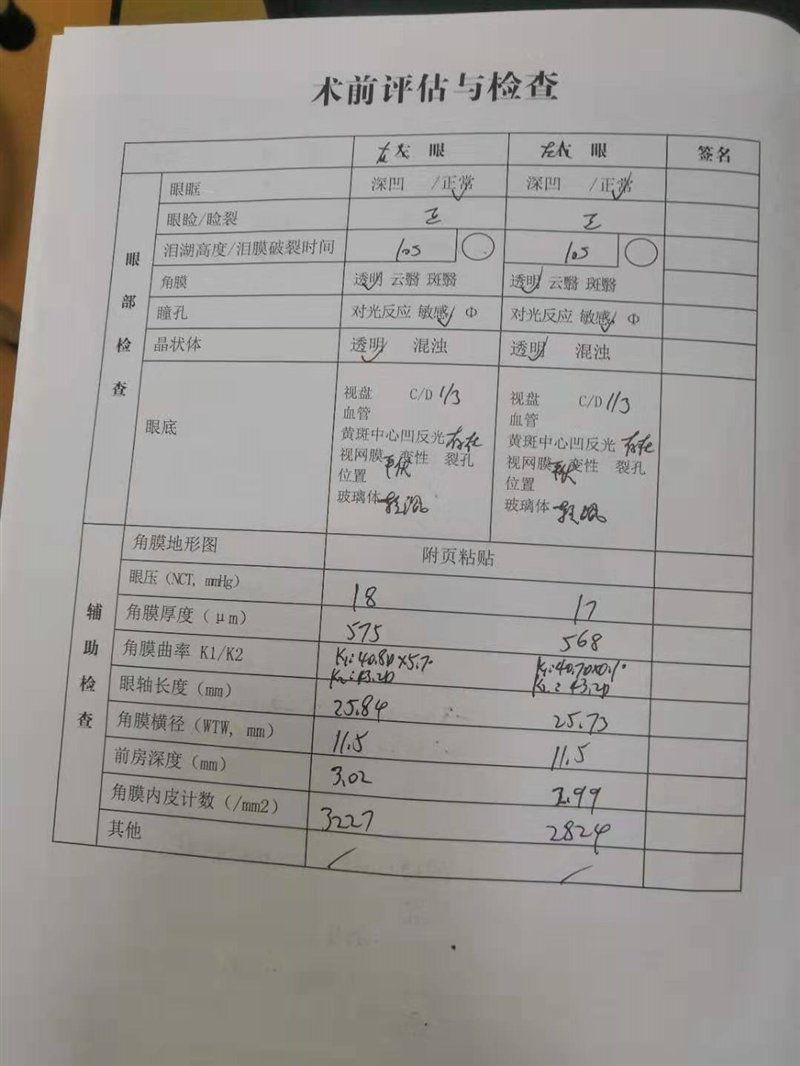 术前评估与检查
右 眼 左 眼 签名
眼部检查
眼眶 深凹 /正常 深凹 /正常
眼睑/睑裂 正 正
泪湖高度/泪膜破裂时间 10s 10s
角膜 透明 云翳 斑翳 透明 云翳 斑翳
瞳孔 对光反应 敏感 Φ 对光反应 敏感 Φ
晶状体 透明 混浊 透明 混浊
眼底
视盘 C/D 1/3 视盘 C/D 1/3
血管 血管
黄斑中心凹反光 存在 黄斑中心凹反光 存在
视网膜 平伏 变性 裂孔 视网膜 平伏 变性 裂孔
位置 位置
玻璃体 轻混 玻璃体 轻混
辅助检查
角膜地形图 附页粘贴
眼压（NCT, mmHg） 18 17
角膜厚度（μm） 575 568
角膜曲率 K1/K2 K1:40.8D×5.7° K1:40.7D
K2:43.2D K2:43.2D
眼轴长度（mm） 25.84 25.73
角膜横径（WTW, mm） 11.5 11.5
前房深度（mm） 3.02 2.99
角膜内皮计数（/mm2） 3227 2824
其他 / /